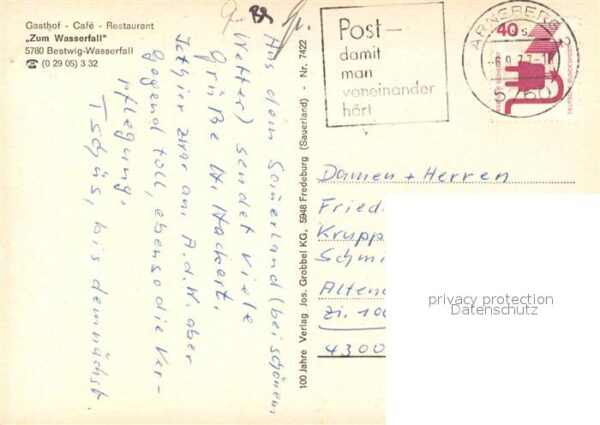 Gasthof - Café - Restaurant
„Zum Wasserfall"
5780 Bestwig-Wasserfall
☎ (0 29 05) 3 32
Aus dem Sauerland (bei schönem
Wetter) sendet viele
Grüße H. Hackert.
Ist hier zwar am A.d.W aber
Gegend toll, ebenso die Ver-
pflegung.
Tschüs, bis demnächst.
100 Jahre Verlag Jos. Grobbel KG, 5948 Fredeburg (Sauerland) - Nr. 7422
Post —
damit
man
voneinander
hört
ARNSBERG 2
5760
40
DEUTSCHE BUNDESPOST
Damen + Herren
Fried
Krupp
Schmi
Altend
Zi. 100
4300
privacy protection
Datenschutz